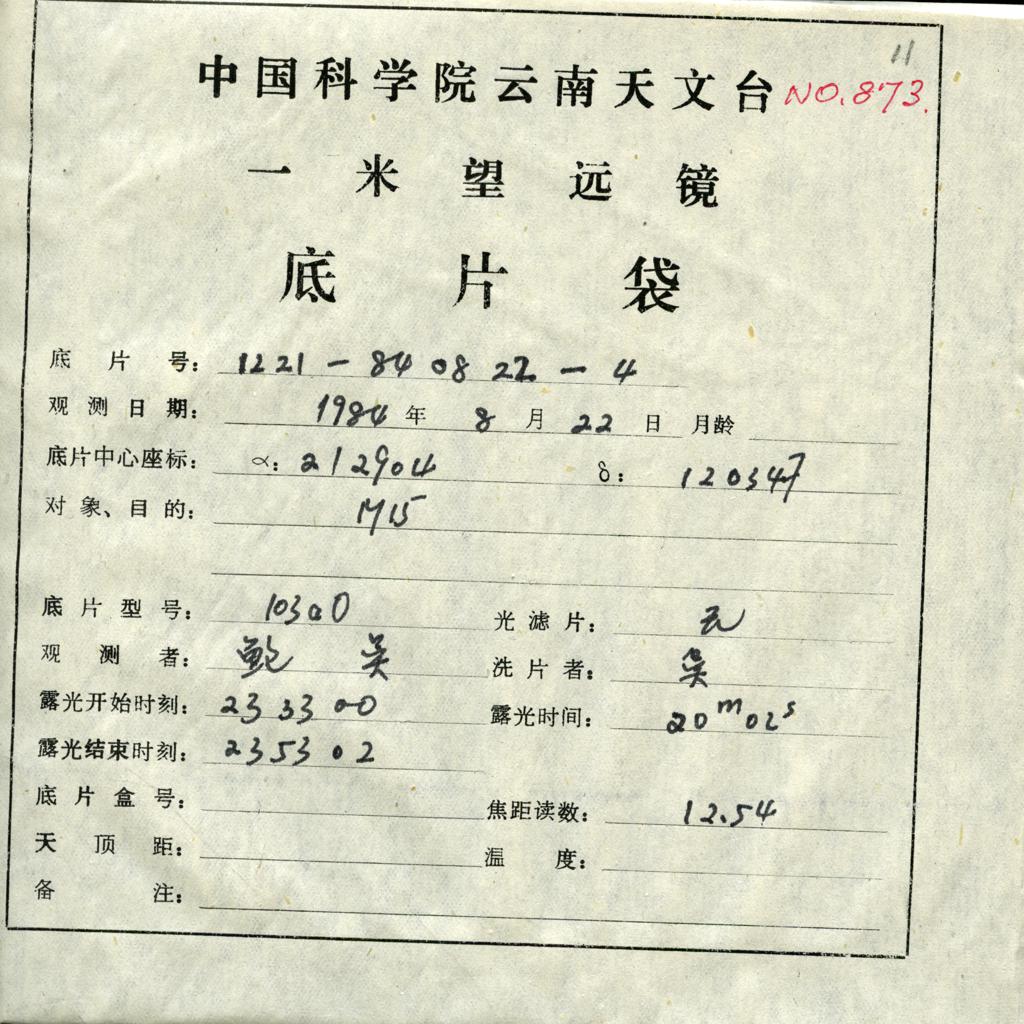 11
中国科学院云南天文台 NO.873.
一米望远镜
底片袋
底片号： 1221-840822-4
观测日期： 1984年 8月22日 月龄
底片中心座标： α：212904 δ：120347
对象、目的： M15
底片型号： 103aO 光滤片： 无
观测者： 鲍 吴 洗片者： 吴
露光开始时刻： 233300 露光时间： 20m02s
露光结束时刻： 235302
底片盒号： 焦距读数： 12.54
天顶距： 温度：
备注：